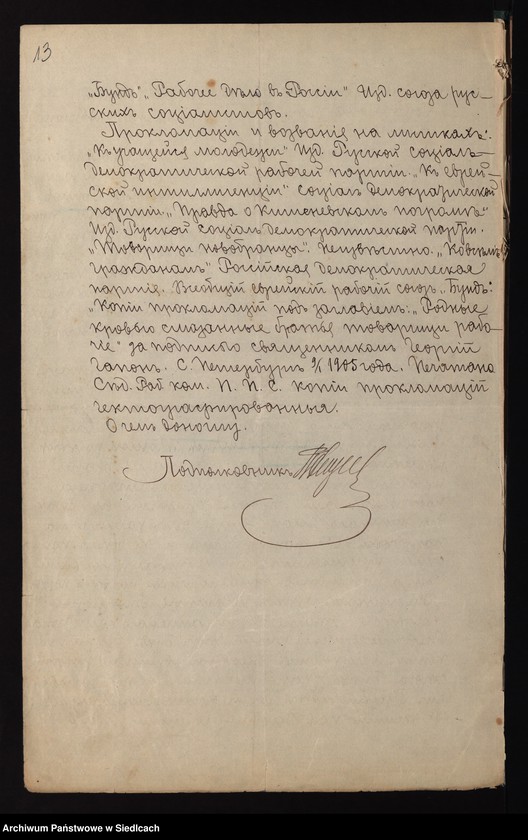 13
„Бундъ". „Рабочее дѣло въ Россіи" Изд. союза рус-
скихъ соціалистовъ.
Прокламаціи и воззванія на листкахъ:
„Къ учащейся молодежи" Изд. Русской соціаль-
демократической рабочей партіи. „Къ еврей-
ской интиллигенціи" соціалъ демократической
партіи. „Правда о Кишиневскомъ погромѣ."
Изд. Русской соціалъ демократической партіи.
„Товарищи новобранцы". Неизвѣстно. „Ко всѣмъ
гражданамъ" Россійская демократическая
партія. Всеобщій еврейскій рабочій союзъ „Бундъ".
„Копіи прокламацій подъ заглавіемъ: „Родные
кровью смазанные братья товарищи рабо-
чіе" за подписью священникомъ Георгій
Гапонъ. С. Петербургъ 9/I 1905 года. Печатано
Спб. Раб. ком. П. П. С. копіи прокламацій
гектографированныя.
О чемъ доношу.
Подполковникъ
Archiwum Państwowe w Siedlcach